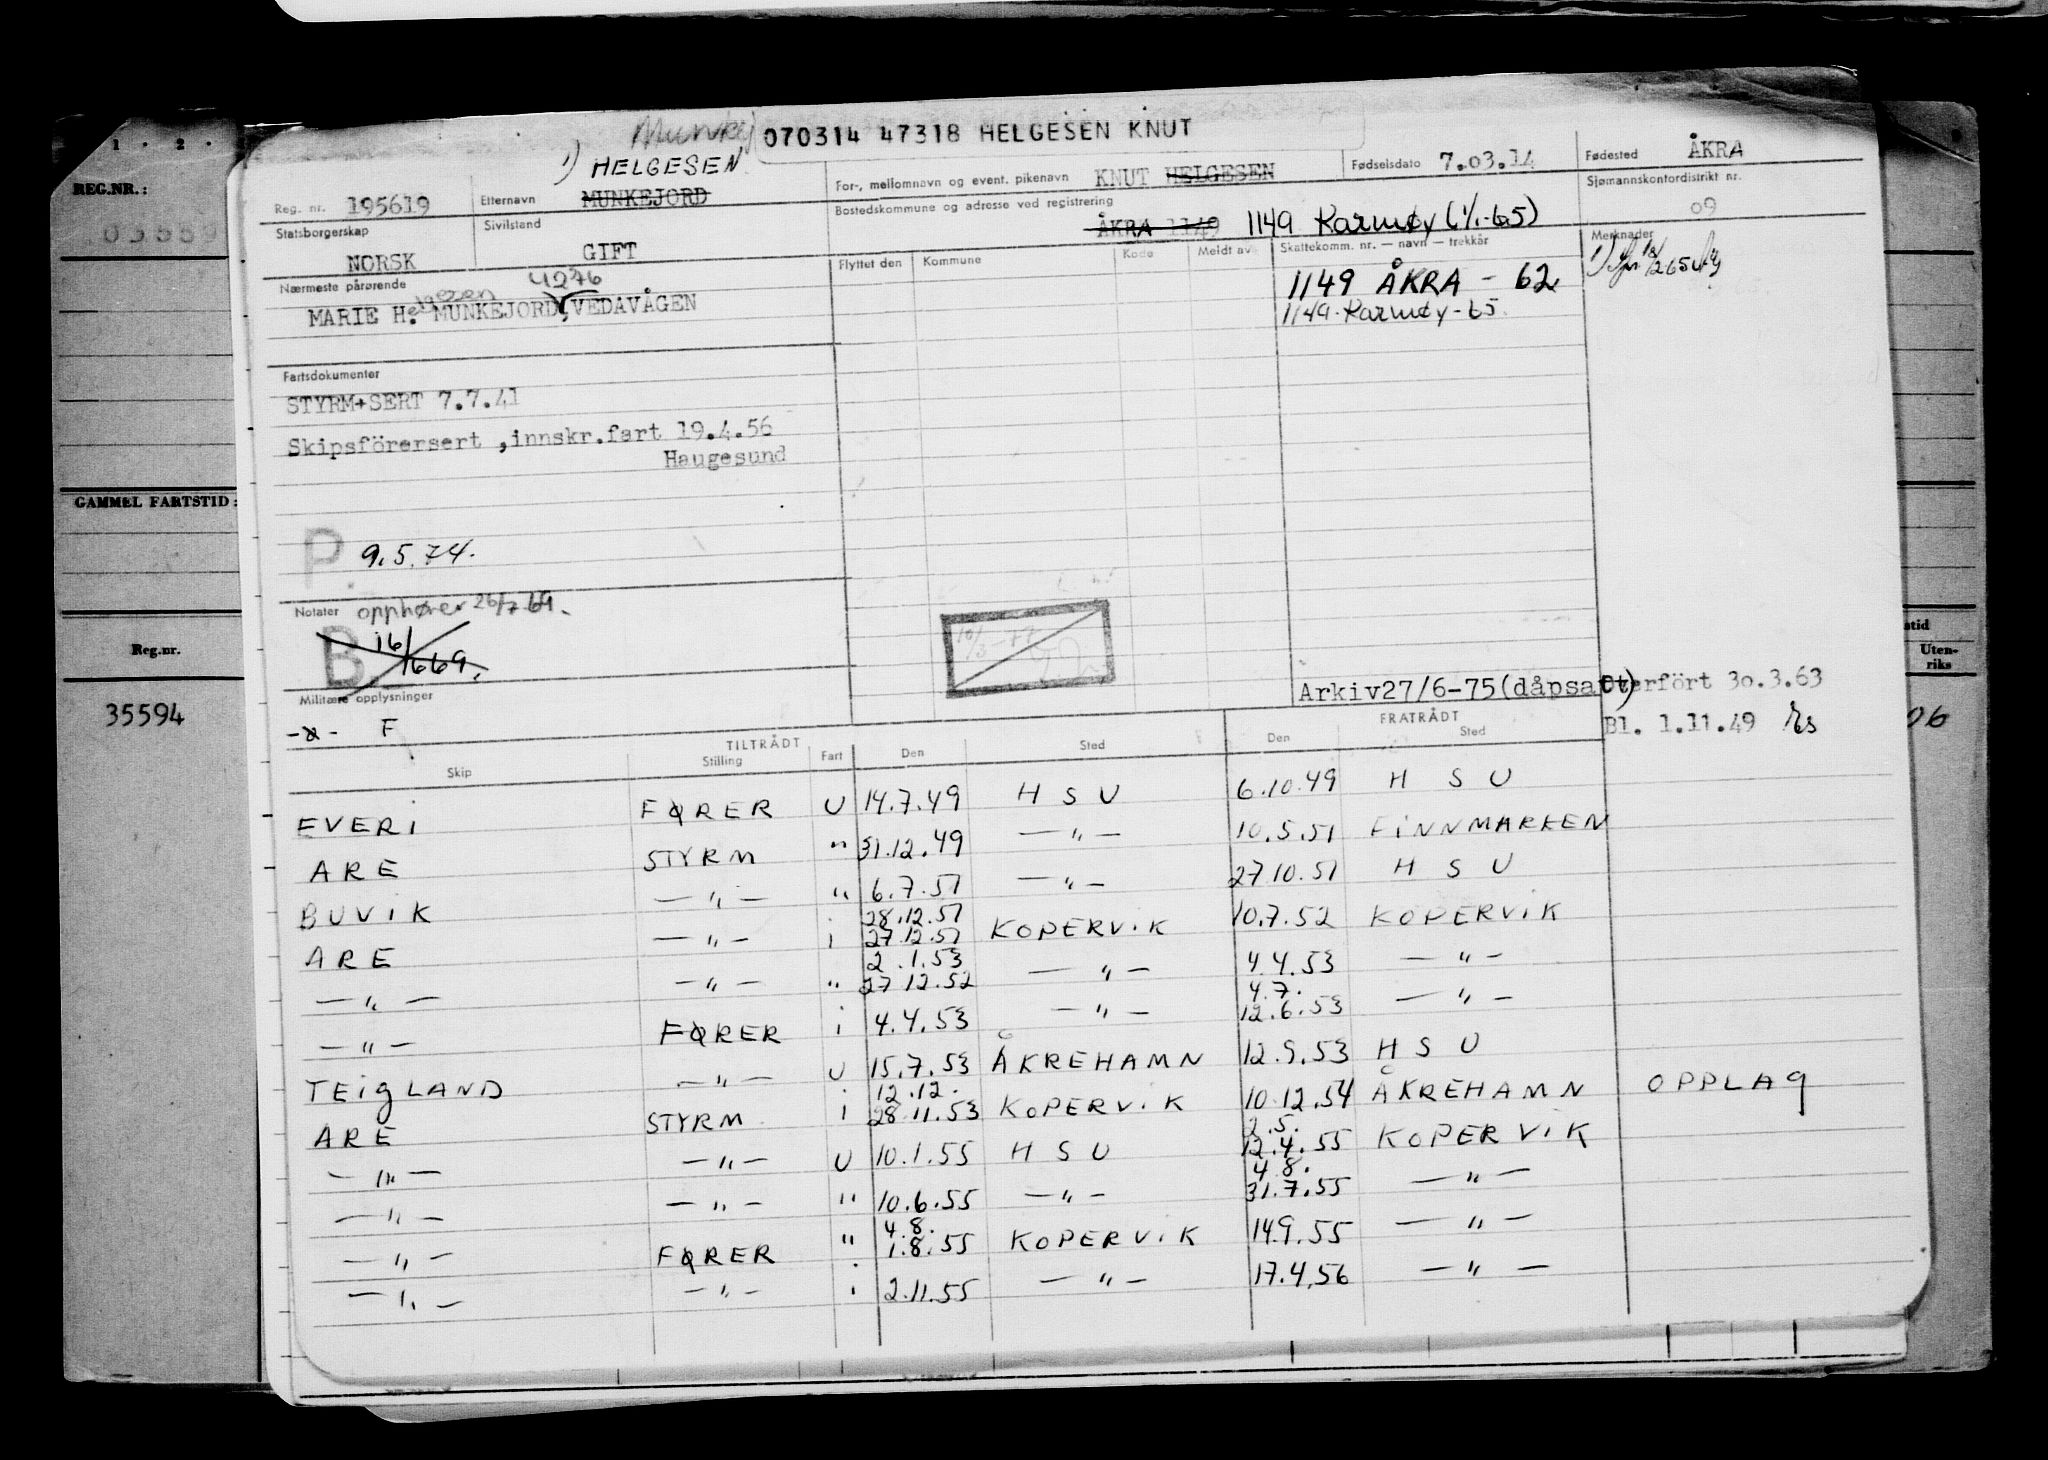 1 . 2 .
REG.NR.:
GAMMEL FARTSTID:
Reg.nr.
35594
Uten-
riks
06
070314 47318 HELGESEN KNUT
1) HELGESEN
Reg. nr. 195619 Etternavn MUNKEJORD For-, mellomnavn og event. pikenavn KNUT HELGESEN Fødselsdato 7.03.14 Fødested ÅKRA
Statsborgerskap NORSK Sivilstand GIFT Bostedskommune og adresse ved registrering ÅKRA 1149 1149 Karmøy (1/1-65) Sjømannskontordistrikt nr. 09
Flyttet den Kommune Kode Meldt av Skattekomm. nr. — navn — trekkår Merknader
1149 ÅKRA - 62
1149 Karmøy - 65
Nærmeste pårørende 4276
Helgesen
MARIE H. MUNKEJORD, VEDAVÅGEN
Fartsdokumenter
STYRM+SERT 7.7.41
Skipsförersert ,innskr.fart 19.4.56
Haugesund
P 9.5.74.
Notater opphører 26/7 69.
B 16/6 69.
Militære opplysninger
F
Arkiv27/6-75(dåpsatt)
Overfört 30.3.63
Bl. 1.11.49
TILTRÅDT FRATRÅDT
Skip Stilling Fart Den Sted Den Sted
EVERI FØRER U 14.7.49 H S U 6.10.49 H S U
ARE STYRM " 31.12.49 — " — 10.5.51 FINNMARKEN
BUVIK — " — " 6.7.51 — " — 27.10.51 H S U
28.12.51
ARE — " — i 27.12.51 KOPERVIK 10.7.52 KOPERVIK
2.1.53
— " — — " — " 27.12.52 — " — 4.4.53 — " —
4.7.
— " — FØRER i 4.4.53 — " — 12.6.53 — " —
TEIGLAND — " — U 15.7.53 ÅKREHAMN 12.9.53 H S U
12.12.
ARE STYRM i 28.11.53 KOPERVIK 10.12.54 ÅKREHAMN OPPLAG
2.5.
— " — — " — U 10.1.55 H S U 12.4.55 KOPERVIK
4.8.
— " — — " — " 10.6.55 — " — 31.7.55 — " —
4.8.
— " — FØRER " 1.8.55 KOPERVIK 14.9.55 — " —
— " — — " — i 2.11.55 — " — 17.4.56 — " —